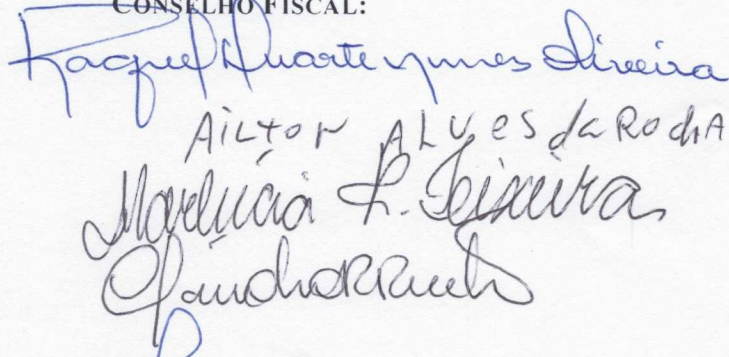 CONSELHO FISCAL:
Raquel Duarte Nunes Oliveira
AiLTON ALVES da RochA
Marlucia R. Teixeira